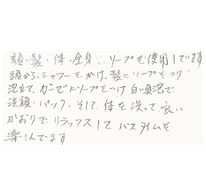 顔・髪・体・全身、ソープを使用しています
頭から、シャワーをかけ、髪にソープをつけ
泡立て、ガーゼにソープをつけ白い真泡で
洗顔・パック、そして体を洗って良い
かおりでリラックスして、バスタイムを
楽しんでます